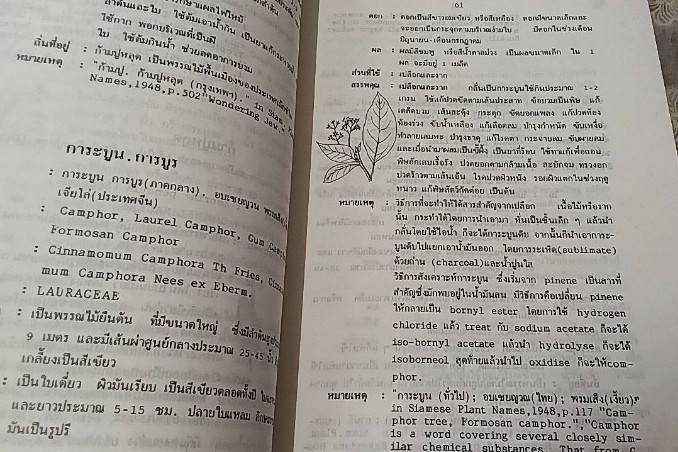 ลำต้นและใบ ใช้ต้มเอาน้ำกิน
ใช้กาก พอกบริเวณที่เป็นฝี
ใบ ใช้ต้มกินน้ำ ช่วยลดอาการบวม
ถิ่นที่อยู่ : ก้ามปูหลุด เป็นพรรณไม้พื้นเมืองของประเทศ
หมายเหตุ : "ก้ามปู, ก้ามปูหลุด (กรุงเทพฯ)." in Siam.
Names,1948,p.502"Wondering Jew.
การะบูน.การบูร
: การะบูน การบูร(ภาคกลาง). อบเชยญวน
เจียโล่(ประเทศจีน)
: Camphor, Laurel Camphor, Gum
Formosan Camphor
: Cinnamomum Camphora Th Fries,
mum Camphora Nees ex Eberm.
: LAURACEAE
: เป็นพรรณไม้ยืนต้น ที่มีขนาดใหญ่
9 เมตร และมีเส้นผ่าศูนย์กลางประมาณ 25-45
เกลี้ยงเป็นสีเขียว
: เป็นใบเดี่ยว ผิวมันเรียบ เป็นสีเขียวตลอดทั้งปี
และยาวประมาณ 5-15 ซม. ปลายใบแหลม
มันเป็นรูปรี
61
ดอก : ดอกเป็นสีขาวอมเขียว หรือสีเหลือง ดอกมีขนาดเล็กและ
จะออกเป็นกระจุกตามบริเวณง่ามใบ มีดอกในช่วงเดือน
มิถุนายน-เดือนกรกฎาคม
ผล : ผลมีสีชมพู หรือสีน้ำตาลม่วง เป็นผลขนาดเล็ก ใน 1
ผล จะมีอยู่ 1 เมล็ด
ส่วนที่ใช้ : เปลือกและราก
สรรพคุณ : เปลือกและราก กลั่นเป็นการบูนใช้กินประมาณ 1-2
เกรน ใช้แก้ปวดขัดตามเส้นประสาท ข้อบวมเป็นพิษ แก้
เคล็ดบวม เส้นสะดุ้ง กระตุก ขัดยอกแพลง แก้ปวดท้อง
ท้องร่วง ขับน้ำเหลือง แก้เลือดลม บำรุงกำหนัด ขับเหงื่อ
ทำลายเสมหะ บำรุงธาตุ แก้โรคตา กระจายลม ขับผายลม
และเมื่อนำมาผสมเป็นขี้ผึ้ง เป็นยาที่ร้อน ใช้ทาแก้เพื่อถอน
พิษอักเสบเรื้อรัง ปวดยอกตามกล้ามเนื้อ สะบักจม ทรวงอก
ปวดร้าวตามเส้นเอ็น โรคปวดผิวหนัง รอยผิวแตกในช่วงฤดู
หนาว แก้พิษสัตว์กัดต่อย เป็นต้น
หมายเหตุ : วิธีการที่จะทำให้ได้สารสำคัญจากเปลือก เนื้อไม้หรือราก
นั้น กระทำได้โดยการนำเอามา หั่นเป็นชิ้นเล็ก ๆ แล้วนำ
กลั่นโดยใช้ไอน้ำ ก็จะได้การะบูนดิบ จากนั้นก็นำเอาการะ-
บูนดิบไปแยกเอาน้ำมันออก โดยการระเหิด(sublimate)
ด้วยถ่าน (charcoal)และน้ำปูนใส
วิธีการสังเคราะห์การะบูน ซึ่งเริ่มจาก pinene เป็นสารที่
สำคัญซึ่งมักพบอยู่ในน้ำมันสน มีวิธีการคือเปลี่ยน pinene
ให้กลายเป็น bornyl ester โดยการใช้ hydrogen
chloride แล้ว treat กับ sodium acetate ก็จะได้
iso-bornyl acetate แล้วนำ hydrolyse ก็จะได้
isoborneol สุดท้ายแล้วนำไป oxidise ก็จะให้com-
phor.
หมายเหตุ : "การะบูน (ทั่วไป); อบเชยญวน(ไทย); พรมเส็ง(เงี้ยว)."
in Siamese Plant Names,1948,p.117 "Cam-
phor tree, Formosan camphor.","Camphor
is a word covering several closely sim-
ilar chemical substances. That from